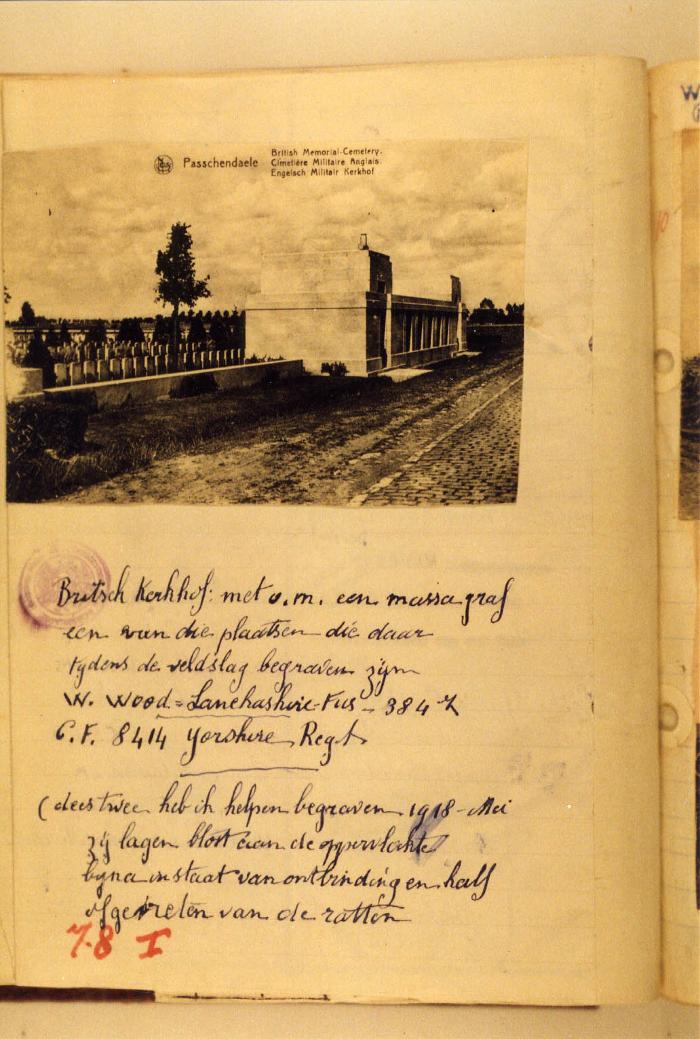 Passchendaele
British Memorial-Cemetery.
Cimetière Militaire Anglais.
Engelsch Militair Kerkhof
Britsch Kerkhof: met o.m. een massa graf
een van die plaatsen die daar
tydens de veldslag begraven zijn
W. Wood = Lanchashire-Fus - 384-7
C.F. 8414 Yorshire Regt
(dees twee heb ik helpen begraven 1918-Mei
zij lagen bloot aan de oppervlakte
byna in staat van ontbinding en half
afgevreten van de ratten
7-8 I
W